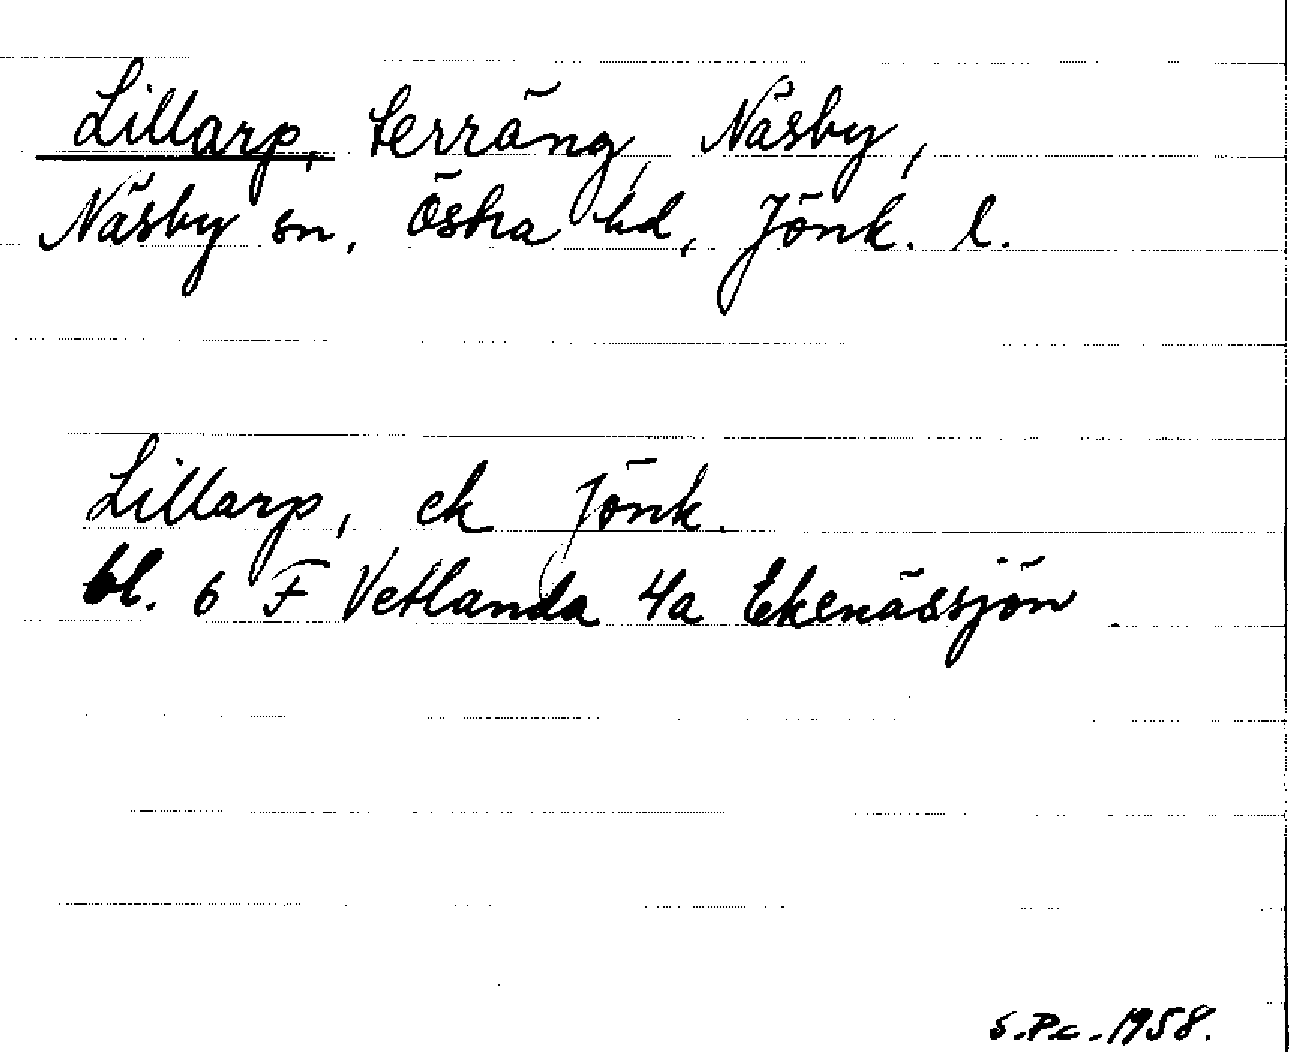 Lillarp, terräng, Näsby,
Näsby sn, Östra hd, Jönk. l.
Lillarp, ek Jönk.
bl. 6 F Vetlanda 4a Ekenässjön
S.P.c. 1958.